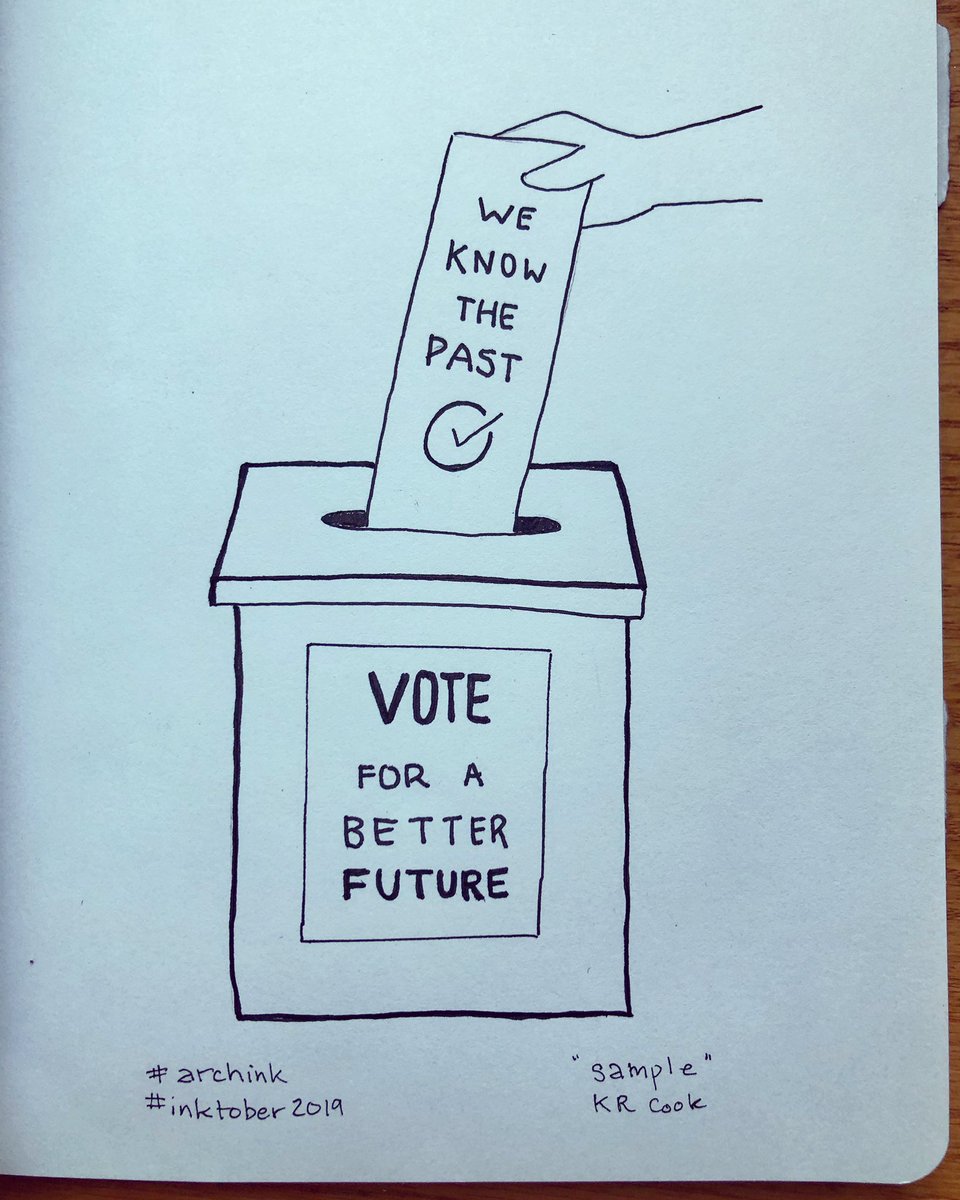 WE
KNOW
THE
PAST
VOTE
FOR A
BETTER
FUTURE
# archink
#inktober 2019
"sample"
KR Cook